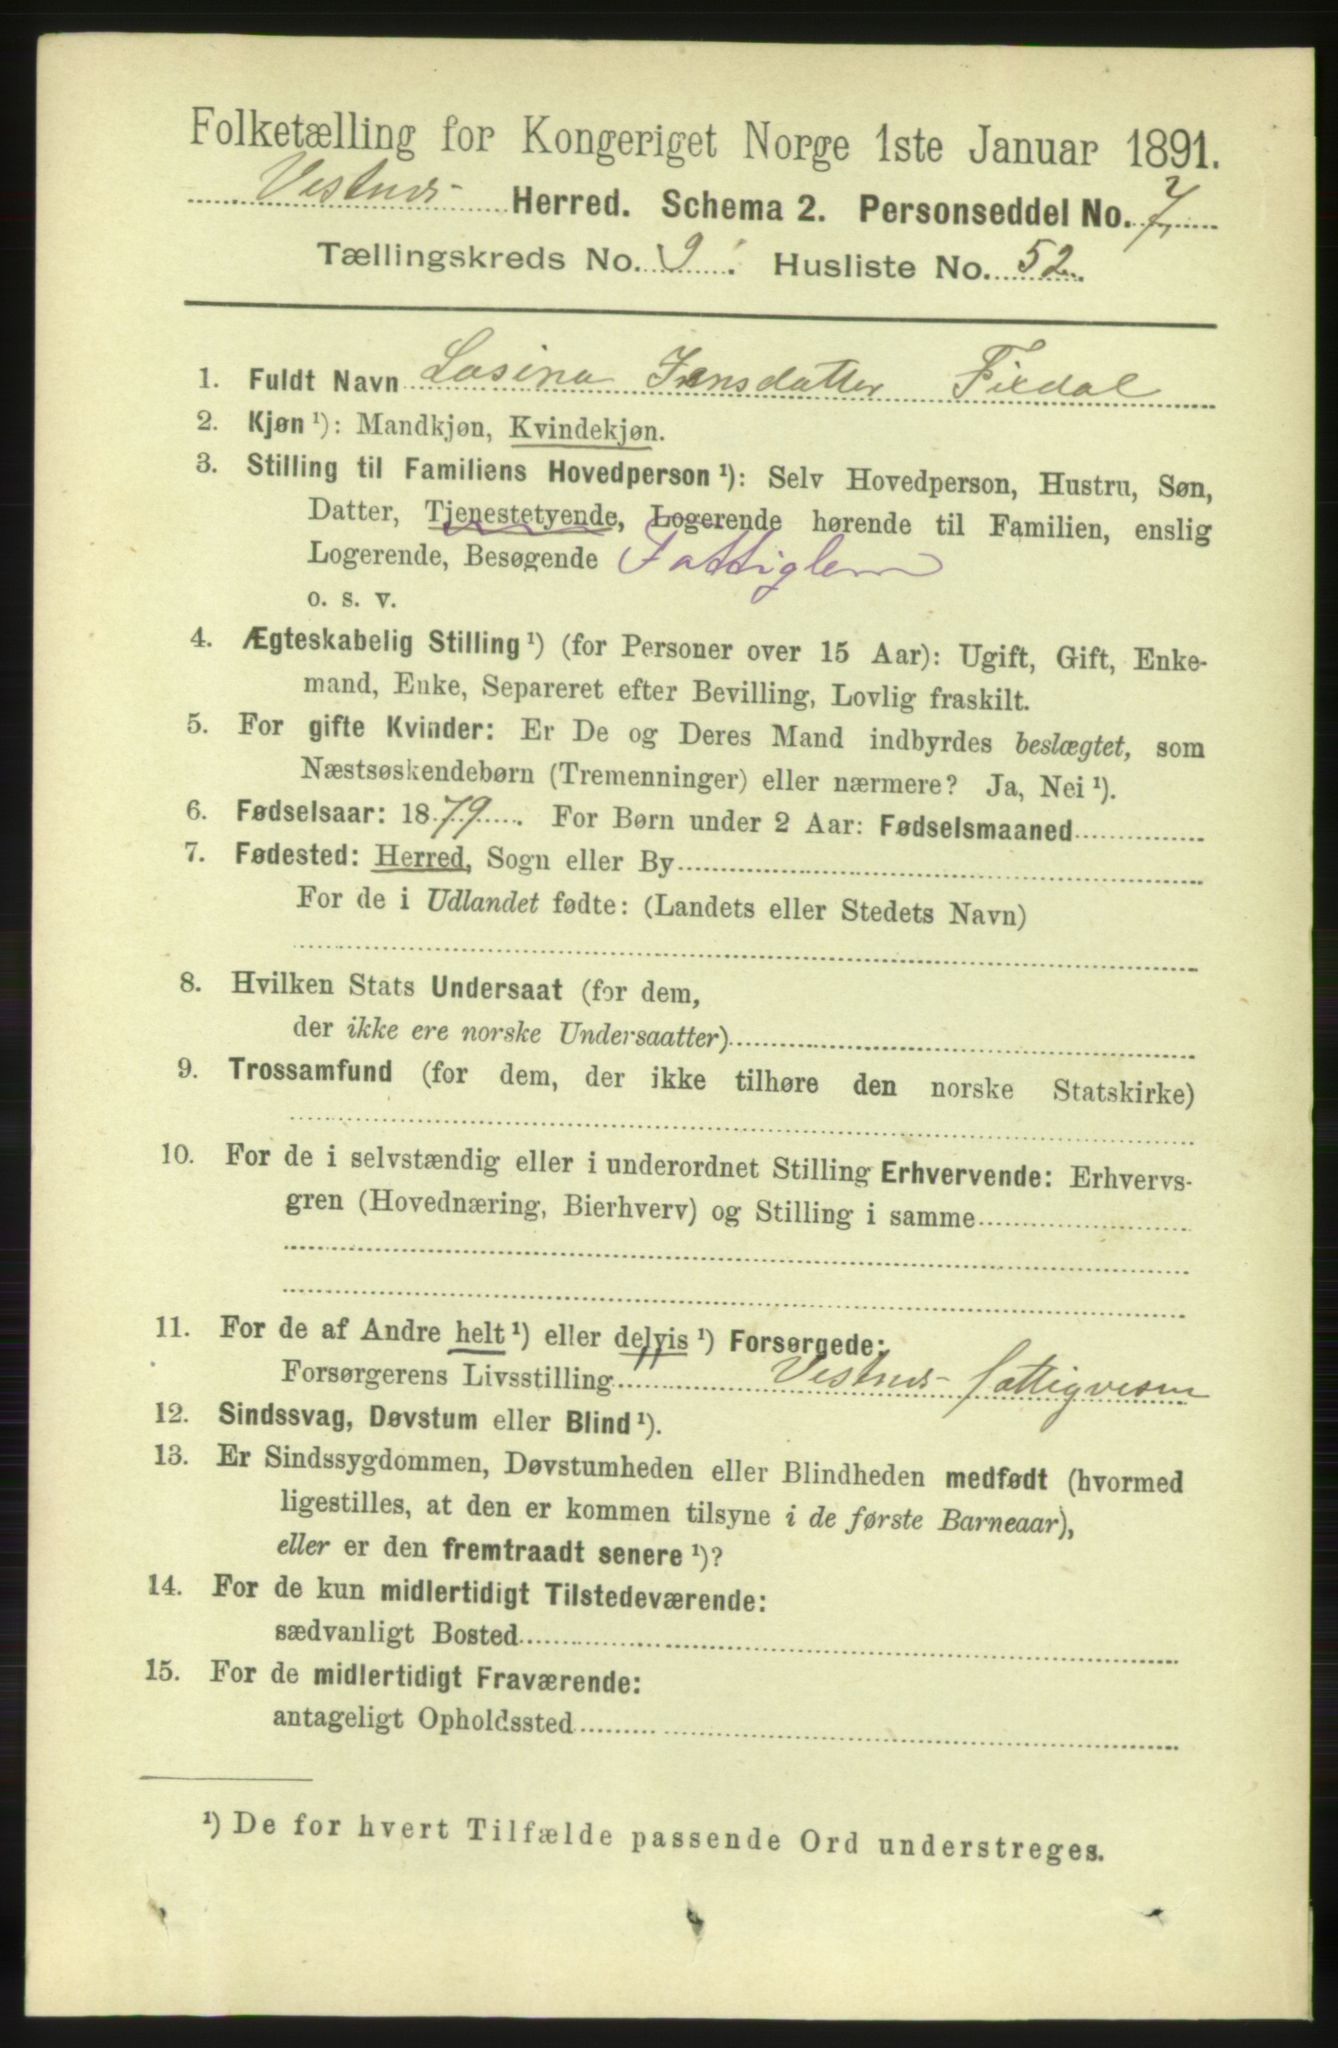 Folketælling for Kongeriget Norge 1ste Januar 1891.
Vestnes Herred. Schema 2. Personseddel No. 7
Tællingskreds No. 9. Husliste No. 52
1. Fuldt Navn Lasina Jensdatter Fixdal
2. Kjøn ¹): Mandkjøn, Kvindekjøn.
3. Stilling til Familiens Hovedperson ¹): Selv Hovedperson, Hustru, Søn,
Datter, Tjenestetyende, Logerende hørende til Familien, enslig
Logerende, Besøgende Fattiglem
o. s. v.
4. Ægteskabelig Stilling ¹) (for Personer over 15 Aar): Ugift, Gift, Enke-
mand, Enke, Separeret efter Bevilling, Lovlig fraskilt.
5. For gifte Kvinder: Er De og Deres Mand indbyrdes beslægtet, som
Næstsøskendebørn (Tremenninger) eller nærmere? Ja, Nei ¹).
6. Fødselsaar: 1879. For Børn under 2 Aar: Fødselsmaaned
7. Fødested: Herred, Sogn eller By
For de i Udlandet fødte: (Landets eller Stedets Navn)
8. Hvilken Stats Undersaat (for dem,
der ikke ere norske Undersaatter)
9. Trossamfund (for dem, der ikke tilhøre den norske Statskirke)
10. For de i selvstændig eller i underordnet Stilling Erhvervende: Erhvervs-
gren (Hovednæring, Bierhverv) og Stilling i samme
11. For de af Andre helt ¹) eller delvis ¹) Forsørgede:
Forsørgerens Livsstilling Vestnes fattigvesen
12. Sindssvag, Døvstum eller Blind ¹).
13. Er Sindssygdommen, Døvstumheden eller Blindheden medfødt (hvormed
ligestilles, at den er kommen tilsyne i de første Barneaar),
eller er den fremtraadt senere ¹)?
14. For de kun midlertidigt Tilstedeværende:
sædvanligt Bosted
15. For de midlertidigt Fraværende:
antageligt Opholdssted
¹) De for hvert Tilfælde passende Ord understreges.